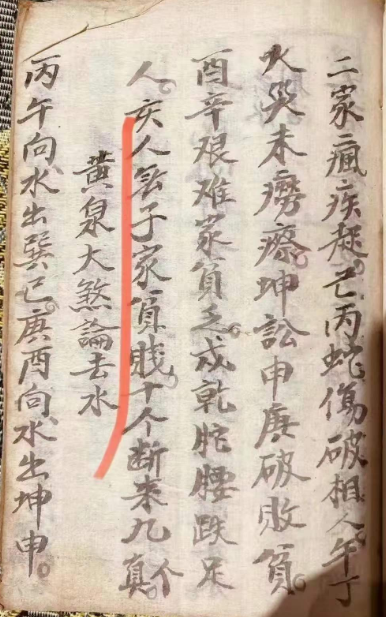 二家瘋疾起。巳丙蛇傷破相人。午丁
火災未癆瘵坤訟申庚破敗貧。
酉辛艰难家貧乏。戌乾腰跌足
人。亥人子家貧賤。十个断来九个真。
黄泉大煞論去水
丙午向水出巽巳。庚酉向水出坤申。